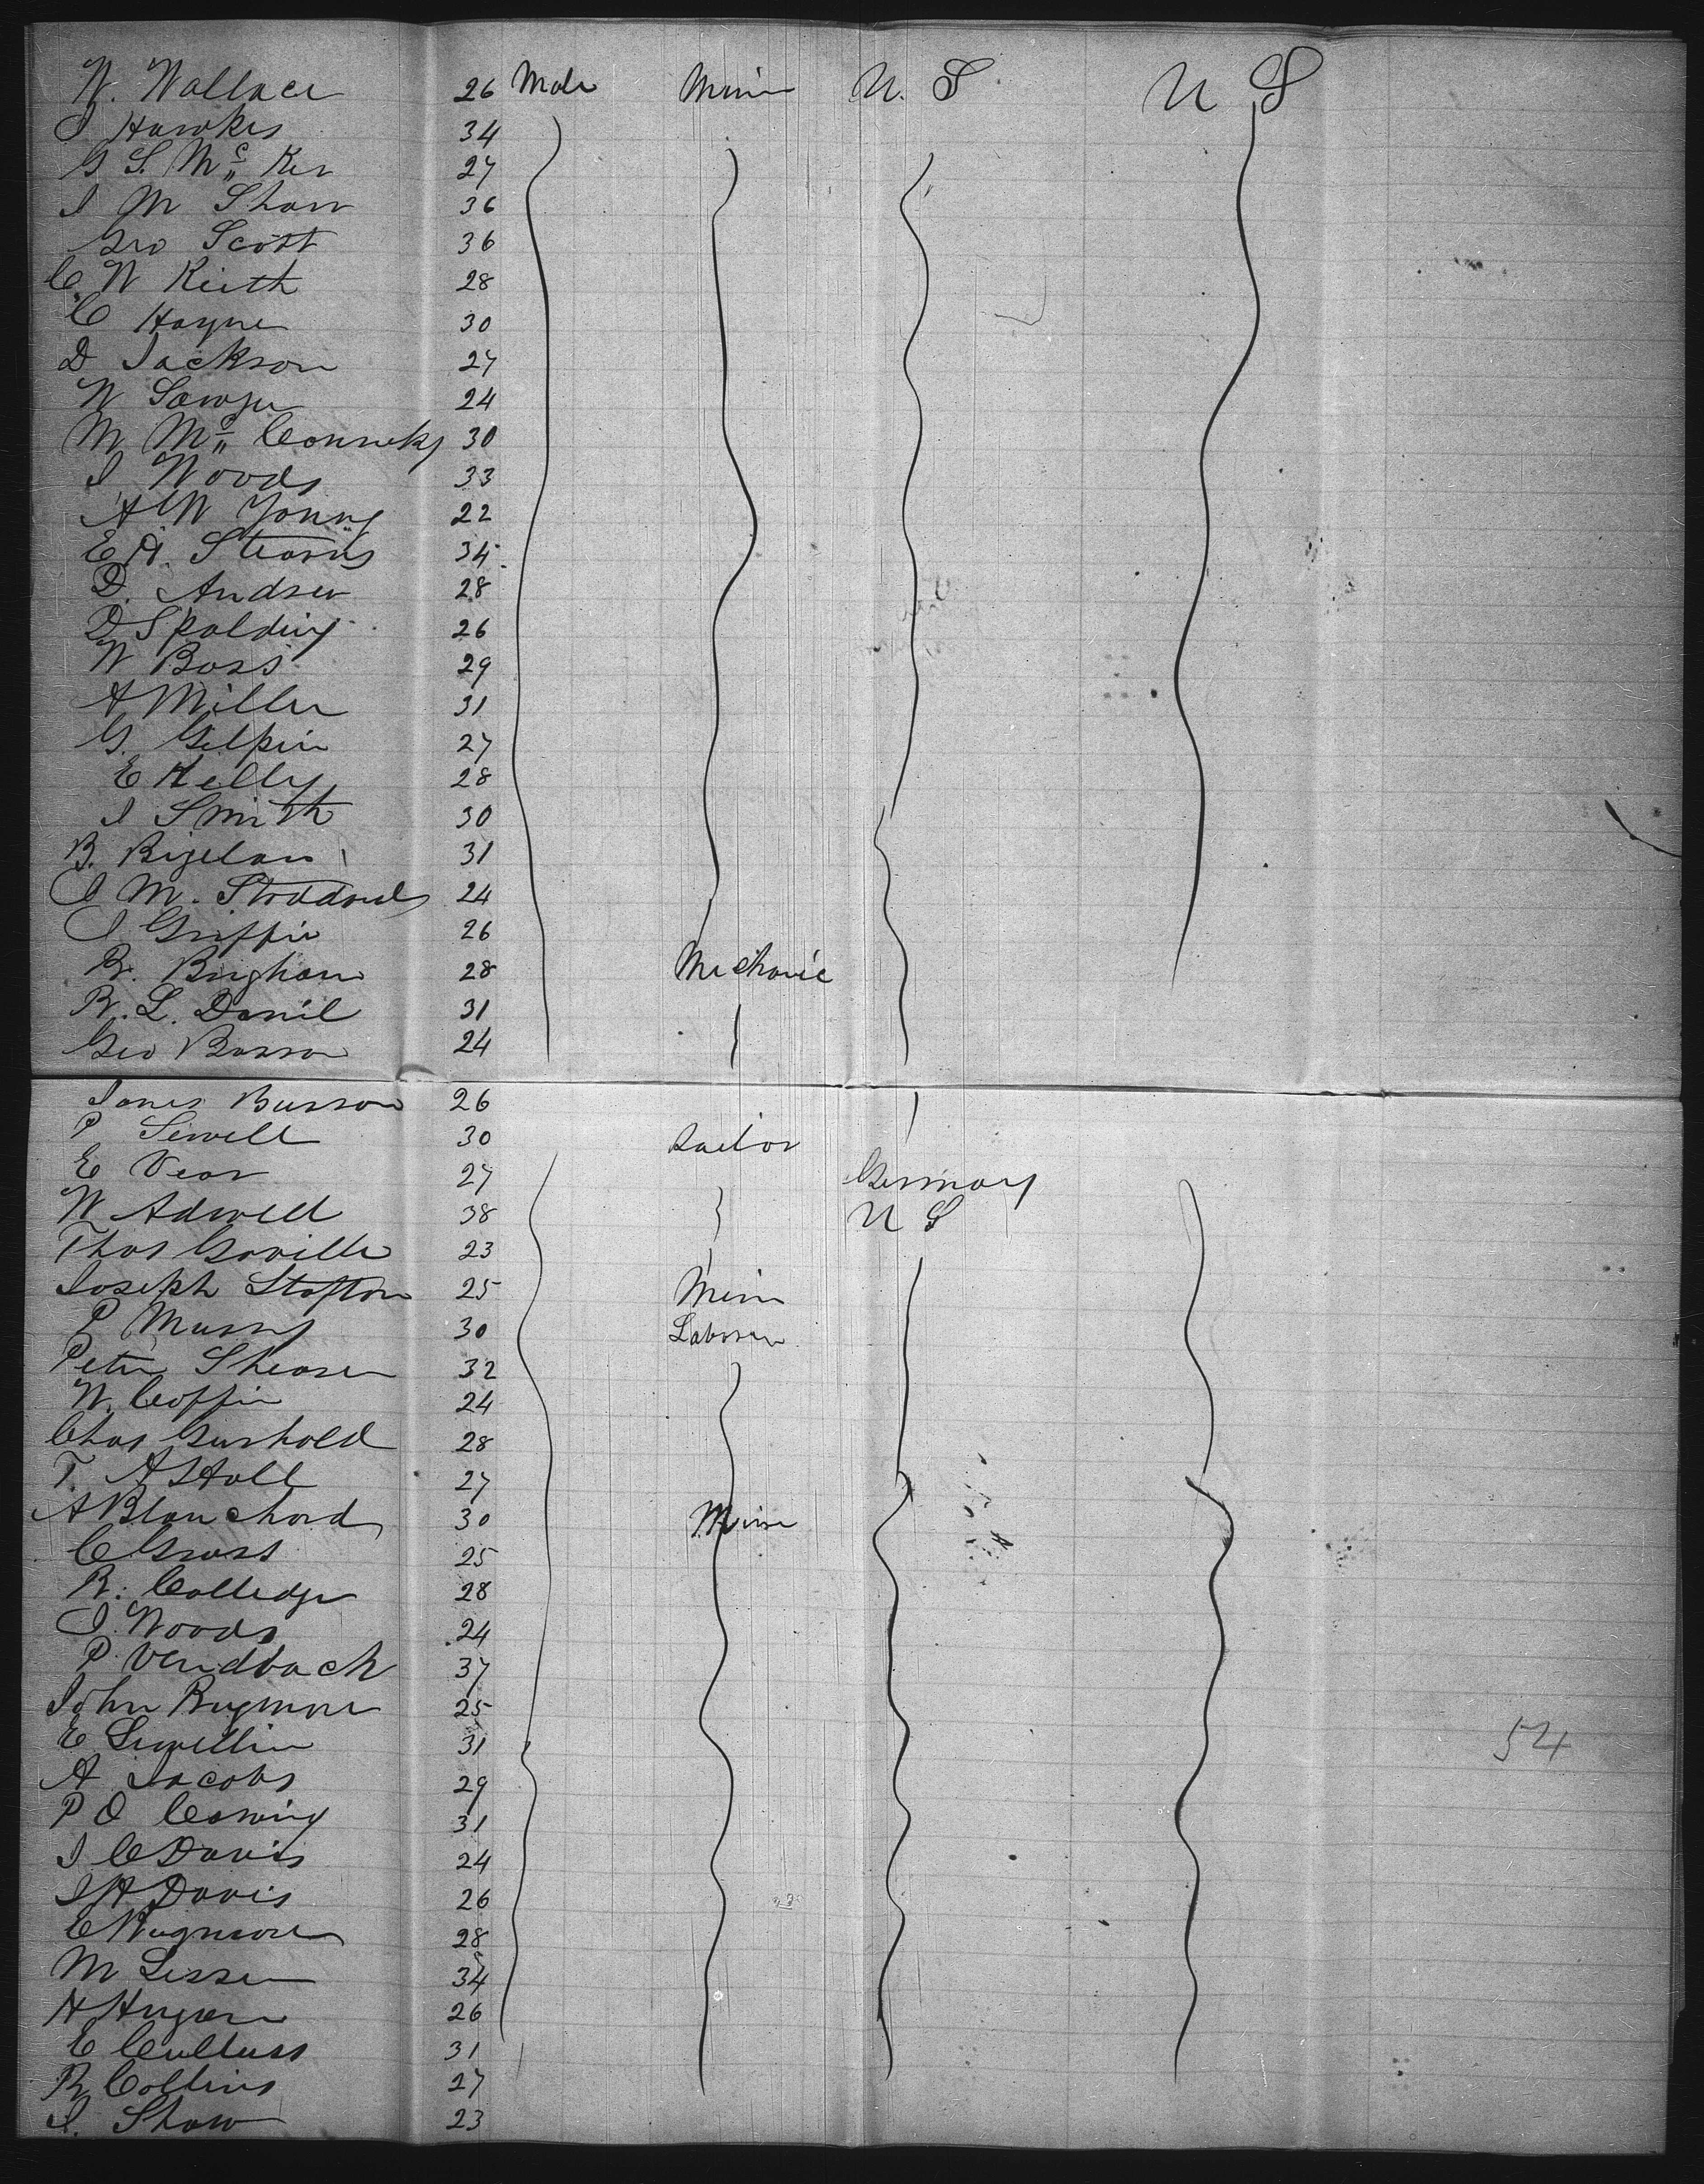 W. Wallace 26 Male Miner U. S U S
J Hawkes 34
G S. Mc Ker 27
J M Shaw 36
Geo Scott 36
C. W Keith 28
C Hayne 30
D Jackson 27
W Sawyer 24
M Mc 30
J Woods 33
A W Young 22
E A. Stearns 34
D. Andrew 28
D Spalding 26
W Bass 29
A Miller 31
G. Gilpin 27
E Kelly 28
J Smith 30
B. Bigelow 31
J M. Stoddard 24
J Griffin 26
R. Brigham 28 Mechanic
R. L. Daniel 31
Geo 24
James Busson 26
P Sewell 30 Sailor
E Vear 27 Germany
W Adwell 38 U S
Thos Graville 23
Joseph Stafton 25 Miner
P Mussy 30 Laborer
Peter Shearer 32
W. Coffin 24
Chas 28
T. A Hall 27
A Blanchard 30 Miner
C Gross 25
R. Colledge 28
J. Woods 24
P. Vendback 37
John Rugmore 25
E Lewellin 31
A Jacobs 29
P O 31
J C Davis 24
J H Davis 26
C 28
M Lesser 34
H 26
E 31
R Collins 27
J. Shaw 23
54